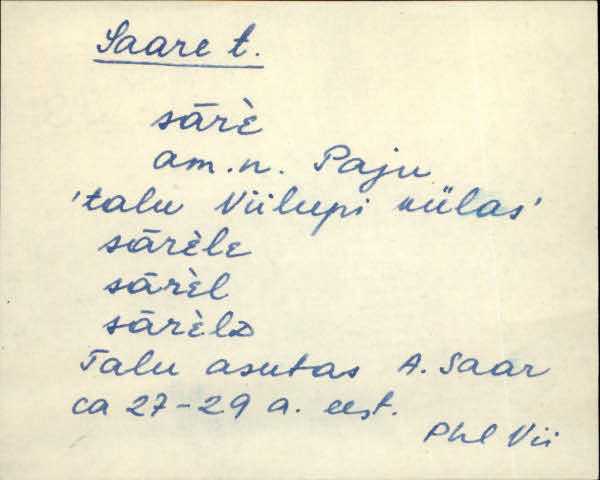 Saare t.
sārè
am.n. Paju
'talu Viilupi külas'
sārèle
sārèl
sārèlᴅ
Talu asutas A. Saar
ca 27-29 a. eest.
Phl Vii